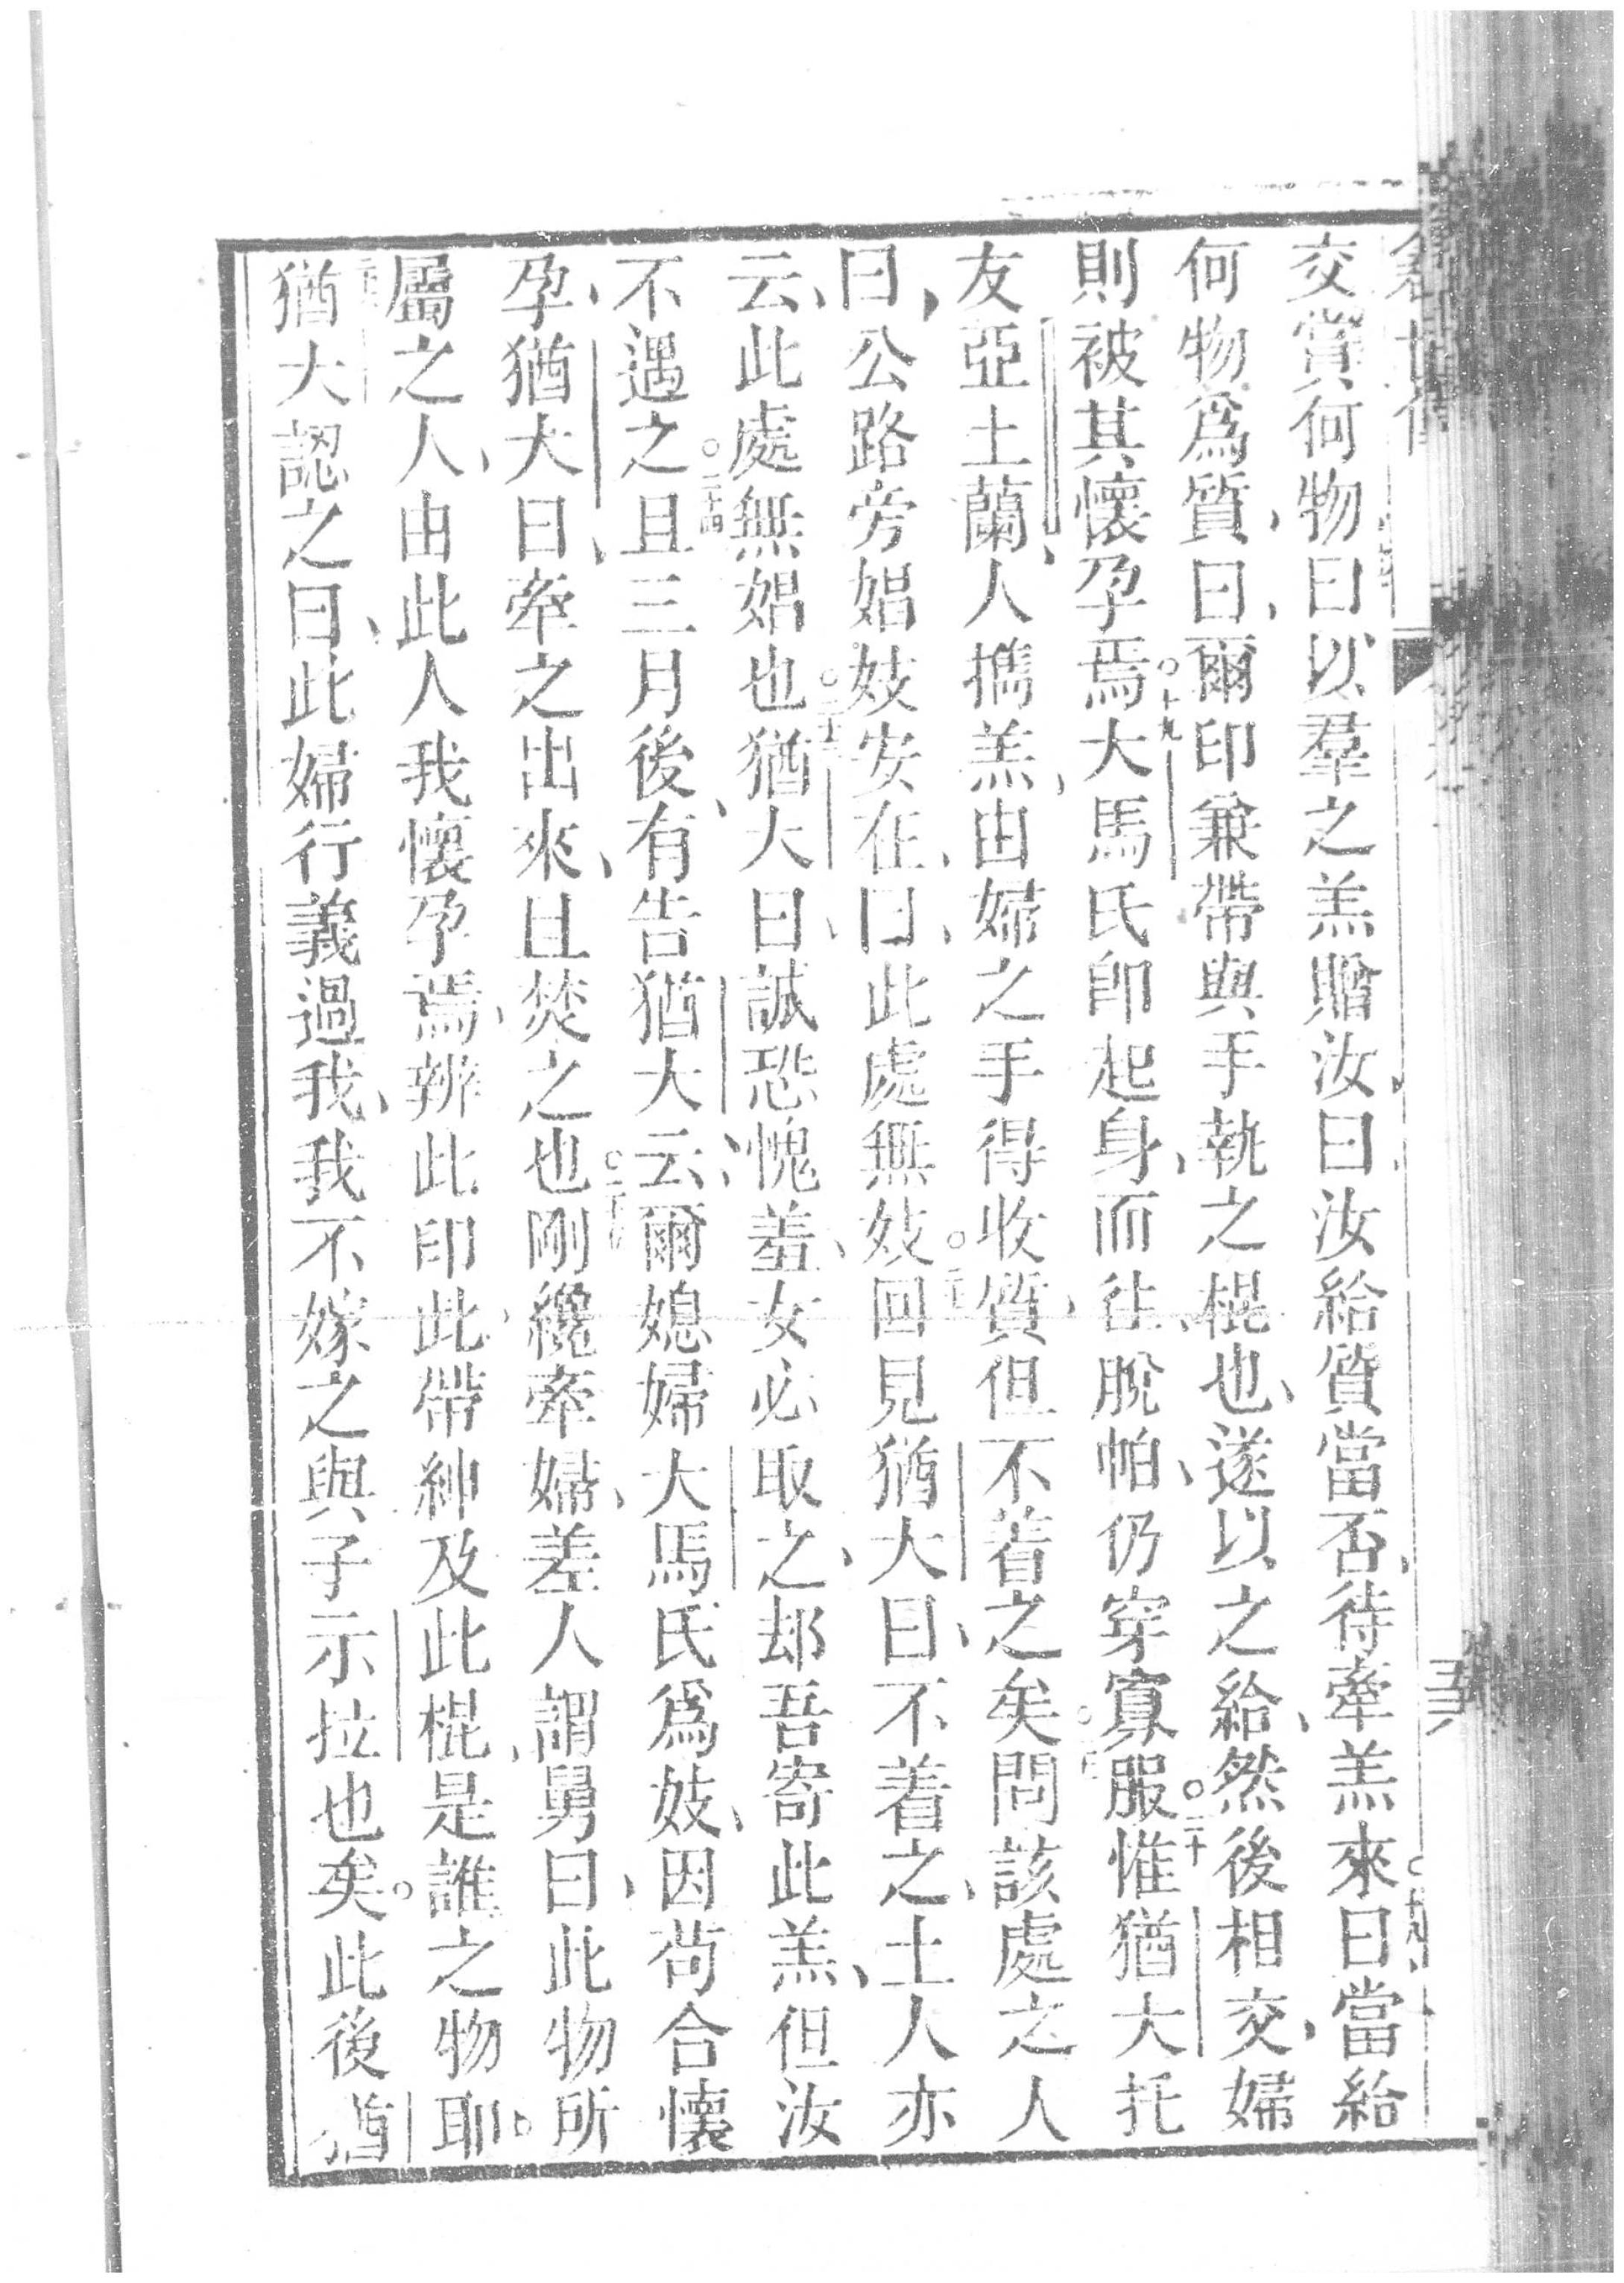 交賞何物曰以羣之羔贈汝曰汝給質當否待牽羔來曰○十八當給
何物爲質曰爾印兼帶與手執之棍也遂以之給然後相交婦
則被其懷孕焉○十九大馬氏卽起身而往脫帕仍穿寡服○二十惟猶大托
友亞土蘭人擕羔由婦之手得收質但不着之矣問該處之人
曰公路旁娼妓安在曰此處無妓○二十二回見猶大曰不着之土人亦
云此處無娼也○二十三猶大曰誠恐愧羞女必取之却吾寄此羔但汝
不遇之○二十四且三月後有告猶大云爾媳婦大馬氏爲妓因苟合懷
孕猶大曰牽之出來且焚之也○二十五剛纔牽婦差人謂舅曰此物所
屬之人由此人我懷孕焉辨此印此帶紳及此棍是誰之物耶
猶大認之曰此婦行義過我我不嫁之與子示拉也矣此後猶